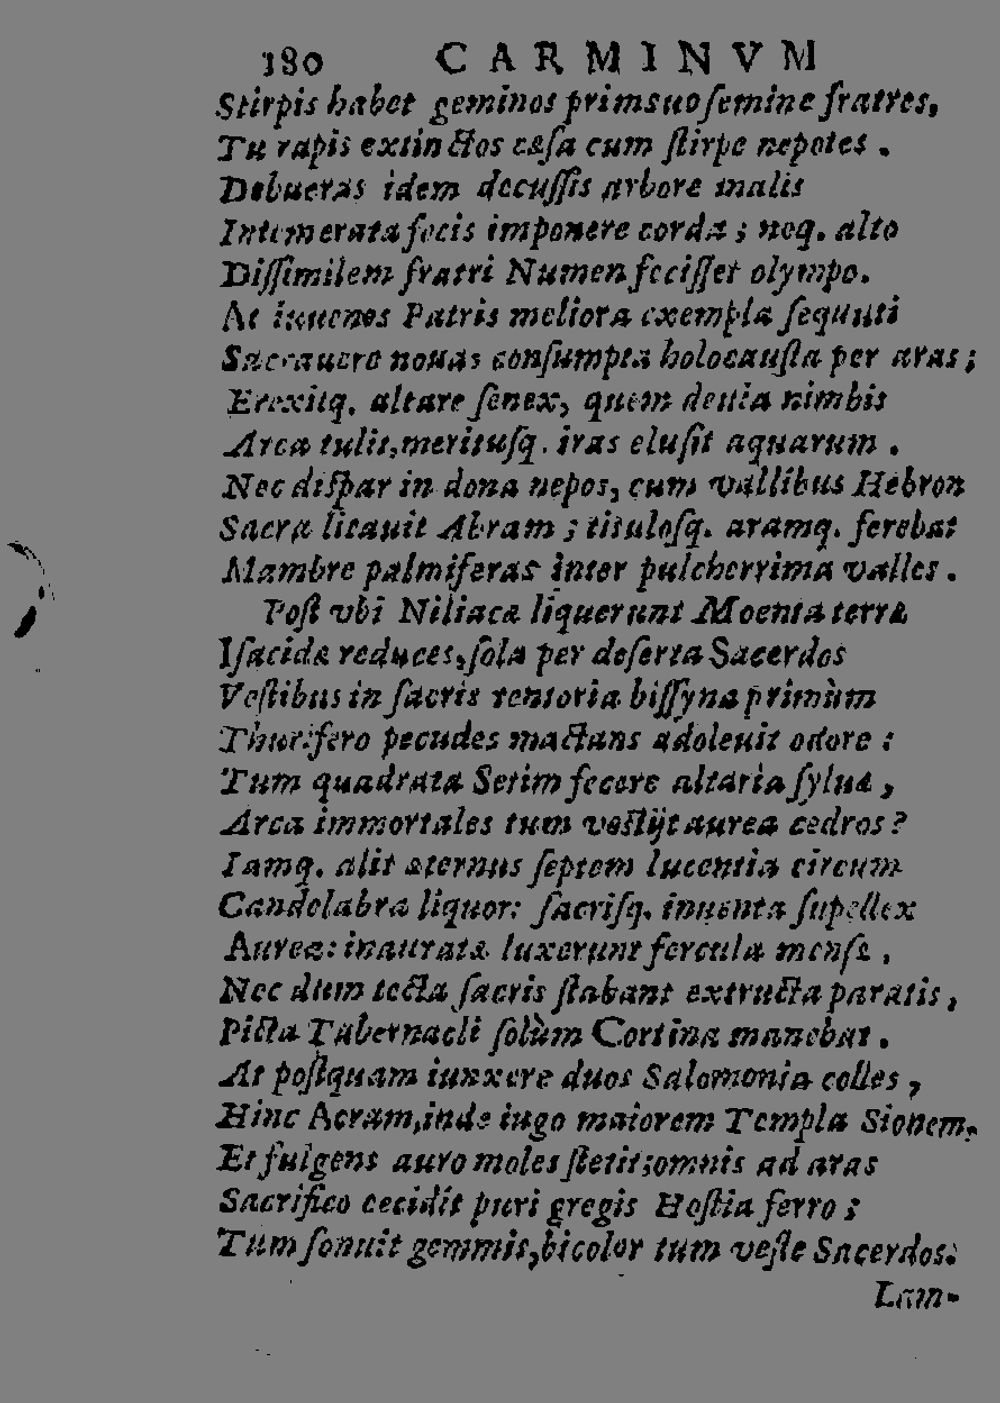 180 CARMINVM
Stirpis habet geminos primsuo semine fratres,
Tu rapis extinctos cæsa cum stirpe nepotes.
Debueras idem decussis arbore malis
Intemerata fecis imponere corda; neq. alto
Dissimilem fratri Numen fecisset olympo.
At iuuenes Patris meliora exempla sequuti
Sacrauere nouas consumpta holocausta per aras;
Erexitq. altare senex, quem deuia nimbis
Arca tulit, meritusq. iras elusit aquarum.
Nec dispar in dona nepos, cum vallibus Hebron
Sacra litauit Abram; titulosq. aramq. ferebat
Mambre palmiferas inter pulcherrima valles.
Post vbi Niliacæ liquerunt Moenia terræ
Isacidæ reduces, sola per deserta Sacerdos
Vestibus in sacris tentoria bissyna primùm
Thurifero pecudes mactans adoleuit odore:
Tum quadrata Setim fecere altaria syluæ,
Arca immortales tum vestijt aurea cedros?
Iamq. alit æternus septem lucentia circum
Candelabra liquor: sacrisq. inuenta supellex
Aurea: inauratæ luxerunt fercula mensæ,
Nec dum tecta sacris stabant extructa paratis,
Picta Tabernacli solùm Cortina manebat.
At postquam iunxere duos Salomonia colles,
Hinc Acram, inde iugo maiorem Templa Sionem,
Et fulgens auro moles stetit; omnis ad aras
Sacrifico cecidit puri gregis Hostia ferro;
Tum sonuit gemmis, bicolor tum veste Sacerdos.
Lam-